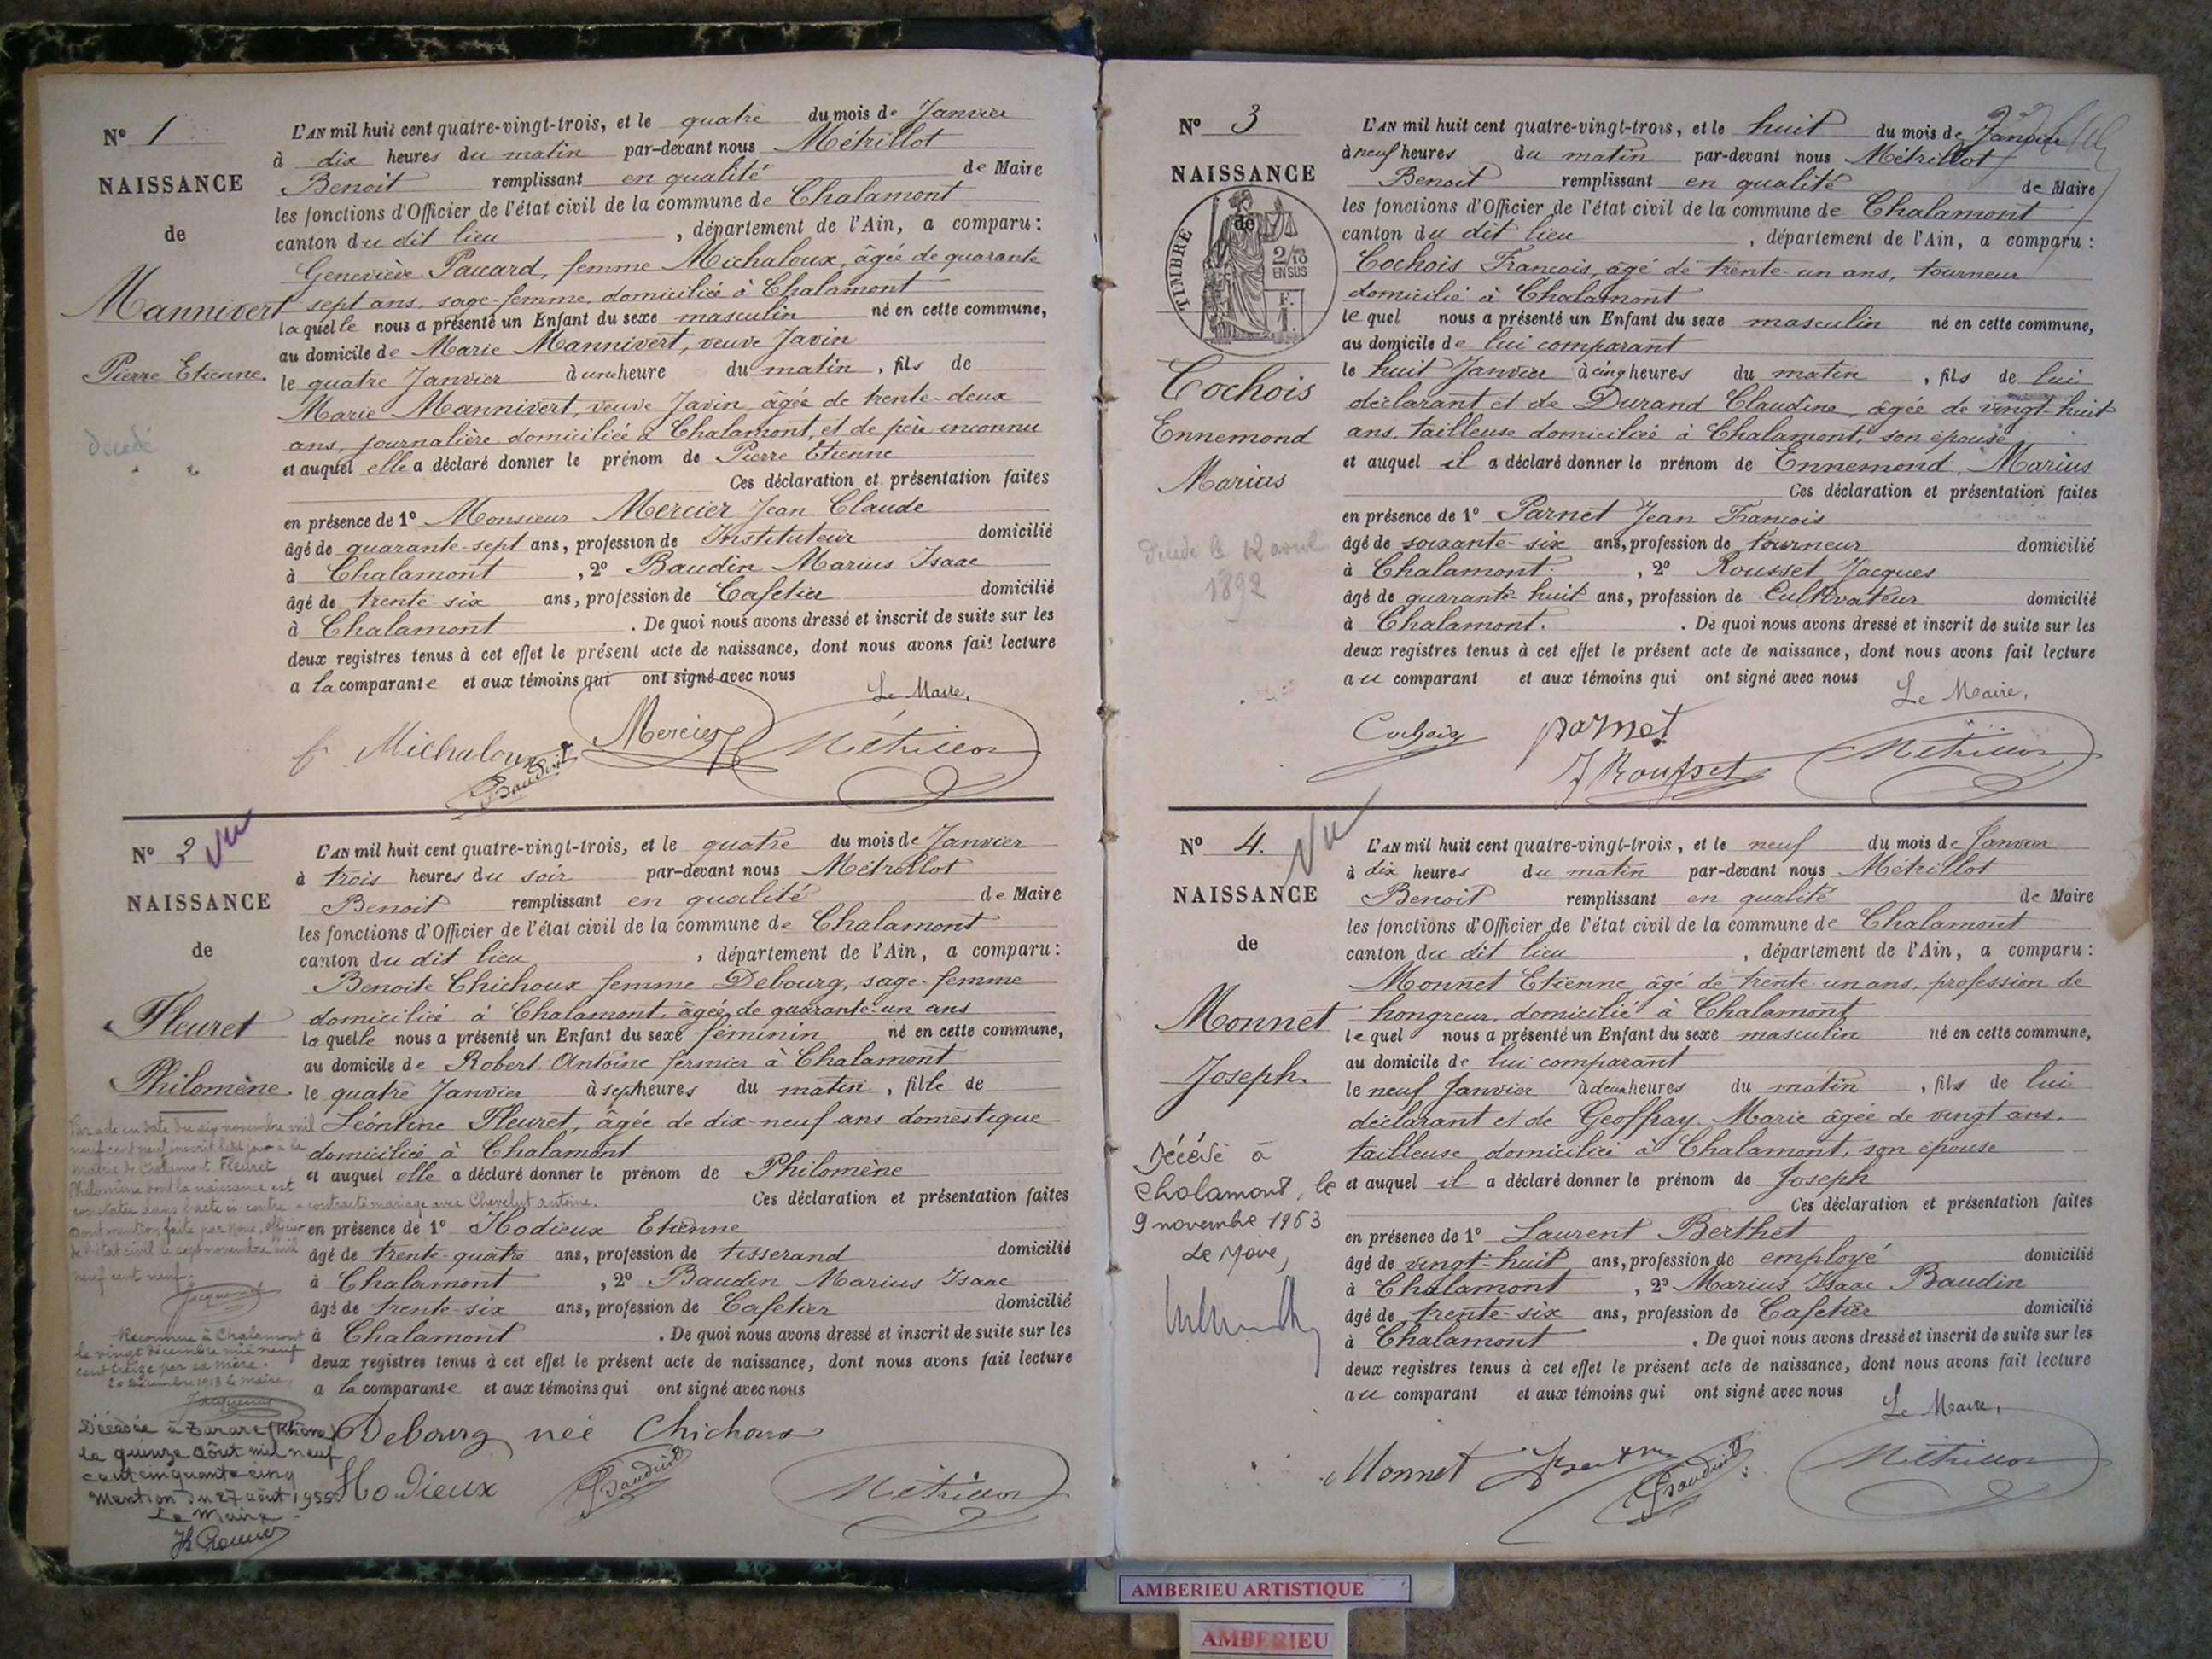 N° 1
NAISSANCE
de
Mannivert
Pierre Etienne.
décédé
L'AN mil huit cent quatre-vingt-trois, et le quatre du mois de Janvier
à dix heures du matin par-devant nous Métrillot
Benoit remplissant en qualité de Maire
les fonctions d'Officier de l'état civil de la commune de Chalamont
canton du dit lieu, département de l'Ain, a comparu:
Geneviève Paccard, femme Michaloux, âgée de quarante
sept ans, sage-femme, domiciliée à Chalamont
laquelle nous a présenté un Enfant du sexe masculin né en cette commune,
au domicile de Marie Mannivert, veuve Javin
le quatre Janvier à une heure du matin, fils de
Marie Mannivert, veuve Javin âgée de trente-deux
ans, journalière domiciliée à Chalamont, et de père inconnu
et auquel elle a déclaré donner le prénom de Pierre Etienne
Ces déclaration et présentation faites
en présence de 1° Monsieur Mercier Jean Claude
âgé de quarante-sept ans, profession de Instituteur domicilié
à Chalamont, 2° Baudin Marius Isaac
âgé de trente six ans, profession de Cafetier domicilié
à Chalamont. De quoi nous avons dressé et inscrit de suite sur les
deux registres tenus à cet effet le présent acte de naissance, dont nous avons fait lecture
a la comparante et aux témoins qui ont signé avec nous
Le Maire,
f. Michaloux Baudin Mercier Métrillot
N° 2 Vu
NAISSANCE
de
Fleuret
Philomène.
Par acte en date du six novembre mil
neuf cent neuf inscrit ledit jour à la
mairie de Chalamont Fleuret
Philomène dont la naissance est
constatée dans l'acte ci-contre a contracté mariage avec Chevelut Antoine.
Dont mention faite par nous, officier
de l'état civil le sept novembre mil
neuf cent neuf.
Jacquemet
Reconnue à Chalamont
le vingt décembre mil neuf
cent treize par sa mère.
20 décembre 1913 le maire,
Décédée à Tarare (Rhône)
le quinze Août mil neuf
cent cinquante cinq
Mention du 27 août 1955
Le Maire
L'AN mil huit cent quatre-vingt-trois, et le quatre du mois de Janvier
à trois heures du soir par-devant nous Métrillot
Benoit remplissant en qualité de Maire
les fonctions d'Officier de l'état civil de la commune de Chalamont
canton du dit lieu, département de l'Ain, a comparu:
Benoite Chichoux femme Debourg, sage-femme
domiciliée à Chalamont, âgée de quarante-un ans
laquelle nous a présenté un Enfant du sexe féminin né en cette commune,
au domicile de Robert Antoine fermier à Chalamont
le quatre Janvier à sept heures du matin, fille de
Léontine Fleuret, âgée de dix-neuf ans domestique
domiciliée à Chalamont
et auquel elle a déclaré donner le prénom de Philomène
Ces déclaration et présentation faites
en présence de 1° Hodieux Etienne
âgé de trente-quatre ans, profession de tisserand domicilié
à Chalamont, 2° Baudin Marius Isaac
âgé de trente-six ans, profession de Cafetier domicilié
à Chalamont. De quoi nous avons dressé et inscrit de suite sur les
deux registres tenus à cet effet le présent acte de naissance, dont nous avons fait lecture
a la comparante et aux témoins qui ont signé avec nous
Debourg née Chichoux
Hodieux Baudin Métrillot
N° 3
NAISSANCE
de
TIMBRE
2/10
EN SUS
Cochois
Ennemond
Marius
Décédé le 12 avril
1892
L'AN mil huit cent quatre-vingt-trois, et le huit du mois de Janvier
à neuf heures du matin par-devant nous Métrillot
Benoit remplissant en qualité de Maire
les fonctions d'Officier de l'état civil de la commune de Chalamont
canton du dit lieu, département de l'Ain, a comparu:
Cochois François, âgé de trente-un ans, tourneur
domicilié à Chalamont
lequel nous a présenté un Enfant du sexe masculin né en cette commune,
au domicile de lui comparant
le huit Janvier à cinq heures du matin, fils de lui
déclarant et de Durand Claudine, âgée de vingt-huit
ans, tailleuse domiciliée à Chalamont, son épouse
et auquel il a déclaré donner le prénom de Ennemond Marius
Ces déclaration et présentation faites
en présence de 1° Parnet Jean François
âgé de soixante-six ans, profession de tourneur domicilié
à Chalamont, 2° Rousset Jacques
âgé de quarante-huit ans, profession de Cultivateur domicilié
à Chalamont. De quoi nous avons dressé et inscrit de suite sur les
deux registres tenus à cet effet le présent acte de naissance, dont nous avons fait lecture
au comparant et aux témoins qui ont signé avec nous
Le Maire,
Cochois parnet
J Rousset Métrillot
N° 4. Vu
NAISSANCE
de
Monnet
Joseph.
Décédé à
Chalamont, le
9 novembre 1963
Le Maire,
L'AN mil huit cent quatre-vingt-trois, et le neuf du mois de Janvier
à dix heures du matin par-devant nous Métrillot
Benoit remplissant en qualité de Maire
les fonctions d'Officier de l'état civil de la commune de Chalamont
canton du dit lieu, département de l'Ain, a comparu:
Monnet Etienne âgé de trente-un ans, profession de
hongreur, domicilié à Chalamont
lequel nous a présenté un Enfant du sexe masculin né en cette commune,
au domicile de lui comparant
le neuf Janvier à deux heures du matin, fils de lui
déclarant et de Geoffray Marie âgée de vingt ans,
tailleuse, domiciliée à Chalamont, son épouse
et auquel il a déclaré donner le prénom de Joseph
Ces déclaration et présentation faites
en présence de 1° Laurent Berthet
âgé de vingt-huit ans, profession de employé domicilié
à Chalamont, 2° Marius Isaac Baudin
âgé de trente-six ans, profession de Cafetier domicilié
à Chalamont. De quoi nous avons dressé et inscrit de suite sur les
deux registres tenus à cet effet le présent acte de naissance, dont nous avons fait lecture
au comparant et aux témoins qui ont signé avec nous
Le Maire,
Monnet Baudin Métrillot
AMBERIEU ARTISTIQUE
AMBERIEU